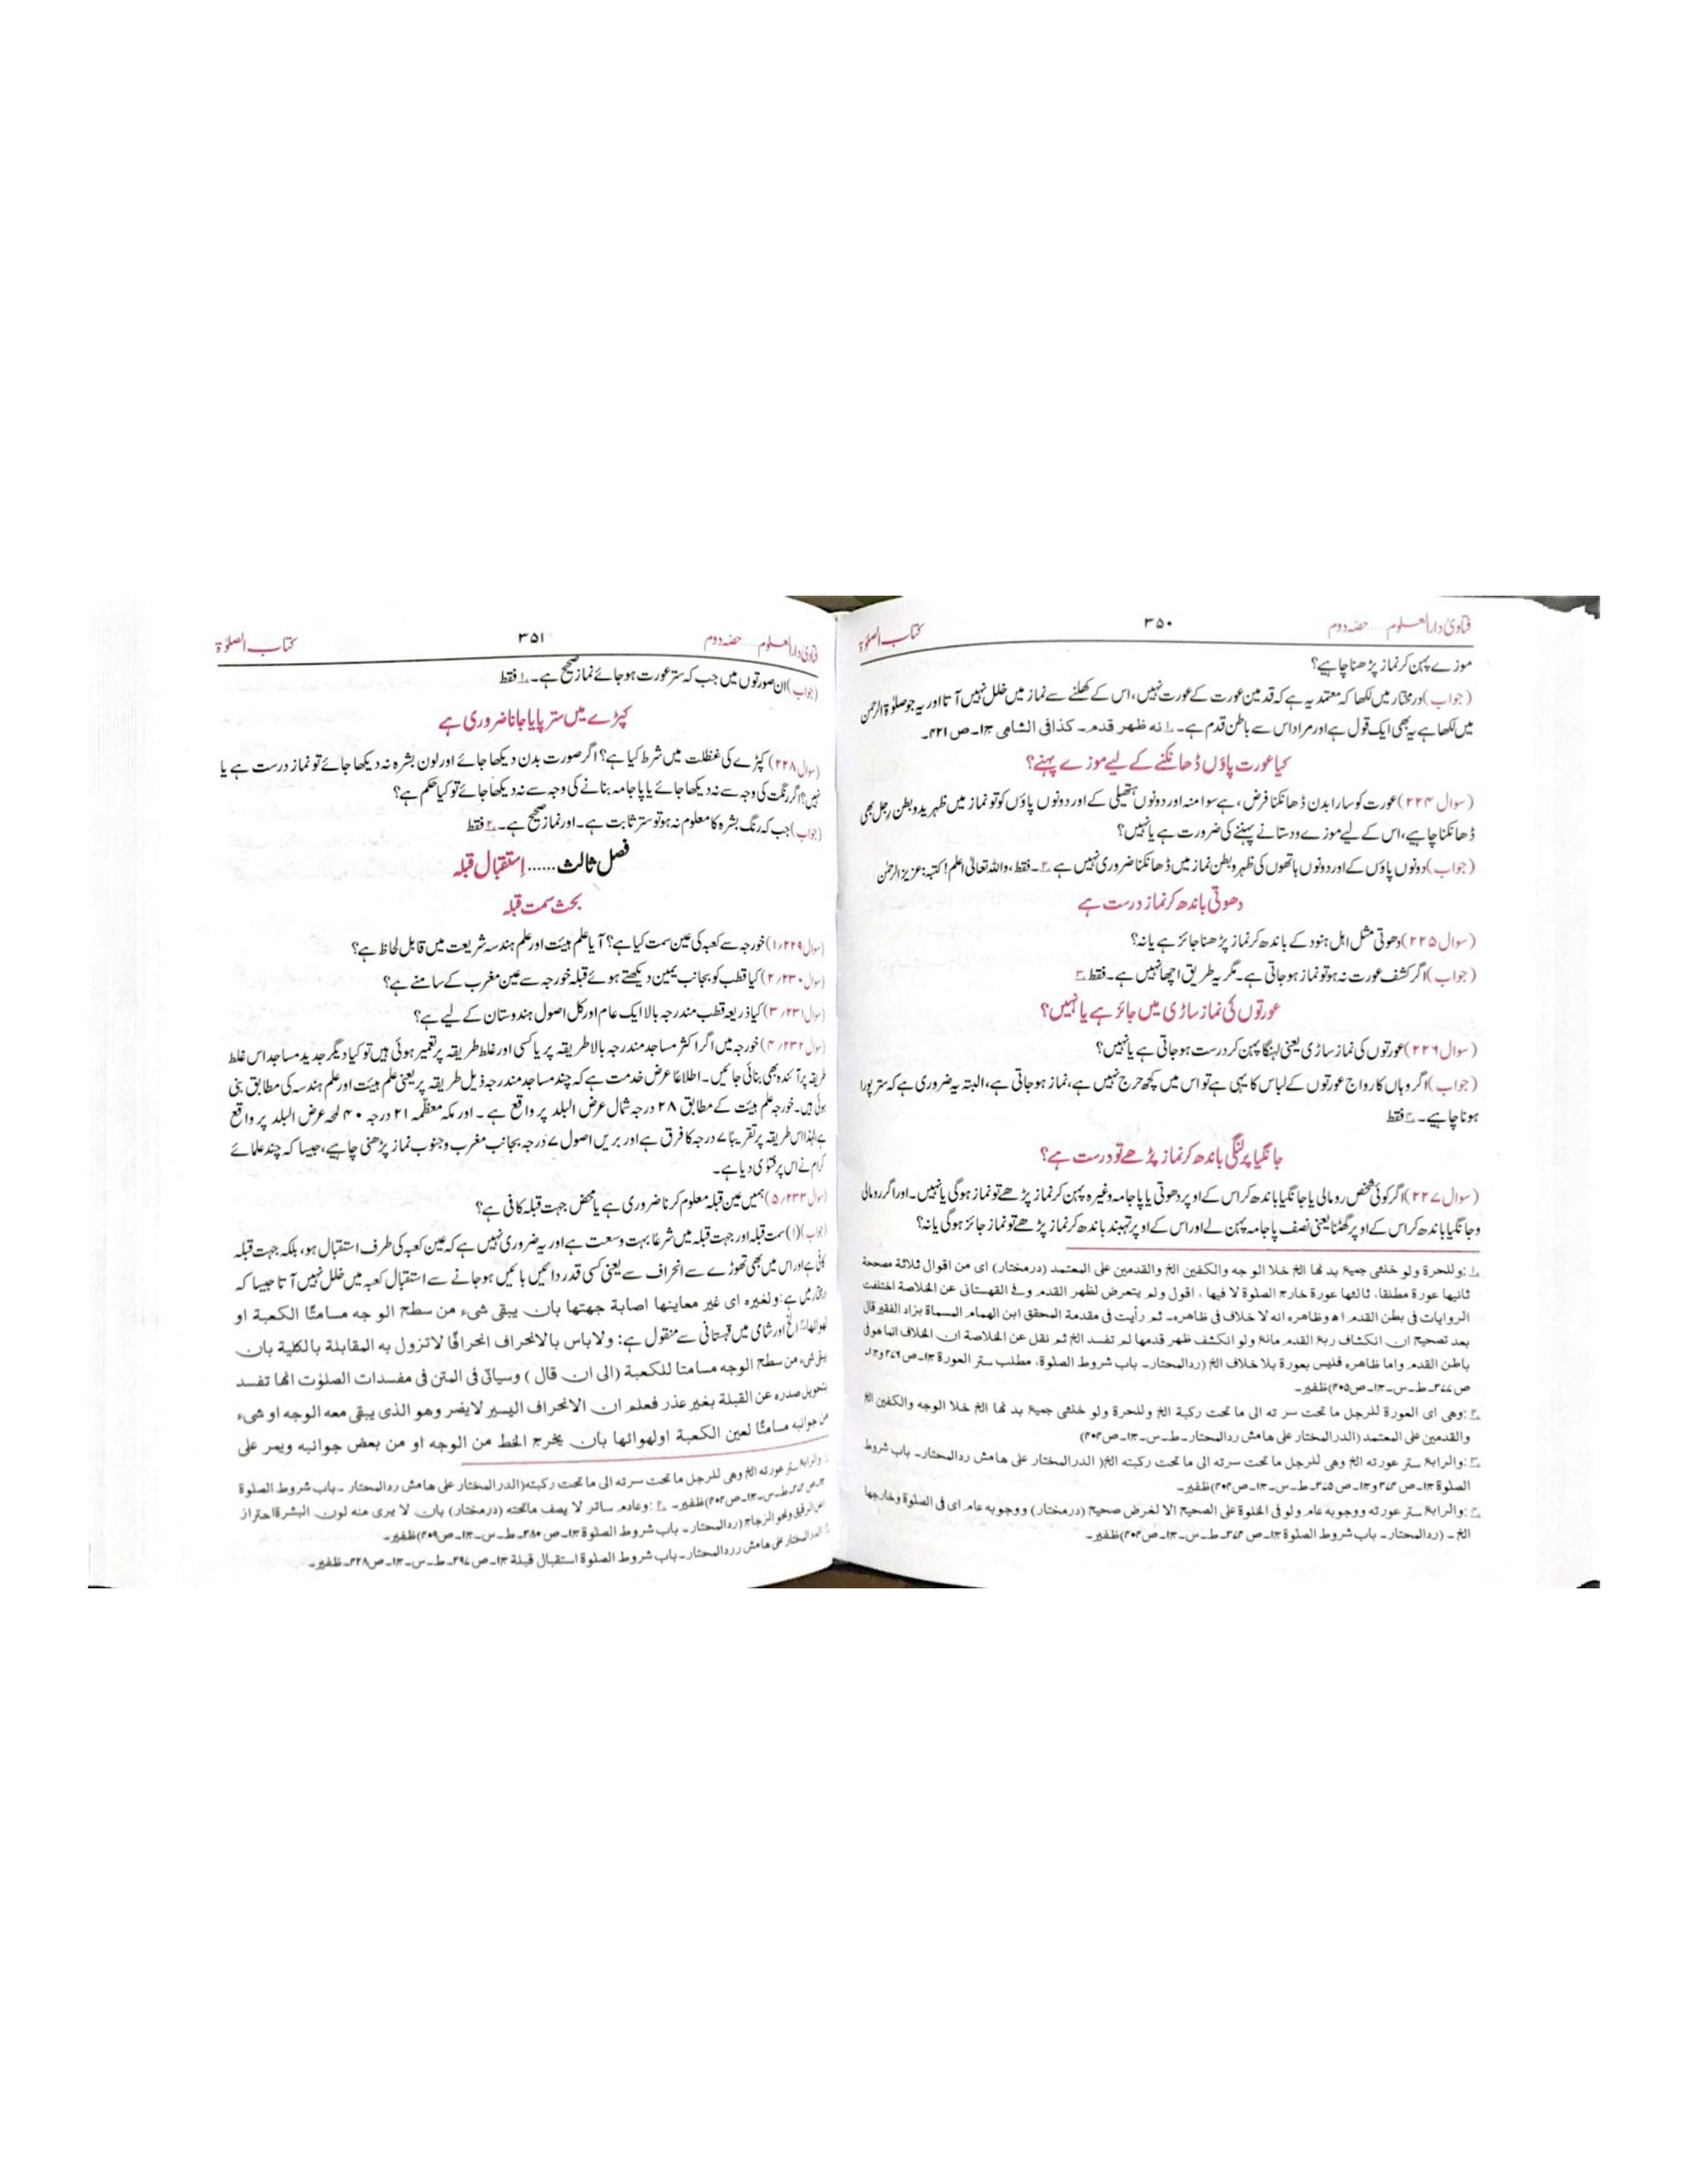 فتاویٰ دارالعلوم...... حصہ دوم
۳۵۰
کتاب الصلوٰۃ
موزے پہن کر نماز پڑھنا چاہیے؟
(جواب) درمختار میں لکھا کہ معتمد یہ ہے کہ قدمین عورت کے عورت نہیں، اس کے کھلنے سے نماز میں خلل نہیں آتا اور یہ جو صلوٰۃ الرحمن
میں لکھا ہے یہ بھی ایک قول ہے اور مراد اس سے باطن قدم ہے۔ نہ ظهر قدم۔ كذا فی الشامی ج۱۔ ص ۴۲۱۔
کیا عورت پاؤں ڈھانکنے کے لیے موزے پہنے؟
(سوال ۲۲۴) عورت کو سارا بدن ڈھانکنا فرض، ہے سوا منہ اور دونوں ہتھیلی کے اور دونوں پاؤں کو تو نماز میں ظہر ید و بطن رجل بھی
ڈھانکنا چاہیے، اس کے لیے موزے و دستانے پہننے کی ضرورت ہے یا نہیں؟
(جواب) دونوں پاؤں کے اور دونوں ہاتھوں کی ظہر و بطن نماز میں ڈھانکنا ضروری نہیں ہے ۲۔ فقط، واللہ تعالیٰ اعلم! کتبہ: عزیز الرحمٰن
دھوتی باندھ کر نماز درست ہے
(سوال ۲۲۵) دھوتی مثل اہل ہنود کے باندھ کر نماز پڑھنا جائز ہے یا نہ؟
(جواب) اگر کشف عورت نہ ہو تو نماز ہو جاتی ہے۔ مگر یہ طریق اچھا نہیں ہے۔ فقط ۳
عورتوں کی نماز ساڑی میں جائز ہے یا نہیں؟
(سوال ۲۲۶) عورتوں کی نماز ساڑی یعنی لہنگا پہن کر درست ہو جاتی ہے یا نہیں؟
(جواب) اگر وہاں کا رواج عورتوں کے لباس کا یہی ہے تو اس میں کچھ حرج نہیں ہے، نماز ہو جاتی ہے، البتہ یہ ضروری ہے کہ ستر پورا
ہونا چاہیے۔ ۴ فقط
جانگیا پر لنگی باندھ کر نماز پڑھے تو درست ہے؟
(سوال ۲۲۷) اگر کوئی شخص رومالی یا جانگیا باندھ کر اس کے اوپر دھوتی یا پاجامہ وغیرہ پہن کر نماز پڑھے تو نماز ہوگی یا نہیں۔ اور اگر رومالی
و جانگیا باندھ کر اس کے اوپر گھٹنا یعنی نصف پاجامہ پہن لے اور اس کے اوپر تہبند باندھ کر نماز پڑھے تو نماز جائز ہوگی یا نہ؟
۱: وللحرة ولو خنثی جمیع بدنها الخ خلا الوجه والکفین الخ والقدمین علی المعتمد (درمختار) ای من اقوال ثلاثة مصححة
ثانیها عورة مطلقا، ثالثها عورة خارج الصلوة لا فیها، اقول ولم یتعرض لظهر القدم وفی القهستانی عن الخلاصة اختلفت
الروایات فی بطن القدم اه وظاهره انه لا خلاف فی ظاهره۔ ثم رأیت فی مقدمة المحقق ابن الهمام المسماة بزاد الفقیر قال
بعد تصحیح ان انکشاف ربع القدم مانع ولو انکشف ظهر قدمها لم تفسد الخ ثم نقل عن الخلاصة ان الخلاف انما هو فی
باطن القدم واما ظاهره فلیس بعورة بلا خلاف الخ (ردالمحتار۔ باب شروط الصلوة، مطلب ستر العورة ج۱۔ ص۳۷۶ وج۱۔
ص۳۷۷۔ط۔س۔ج۱۔ص۴۰۵) ظفیر۔
۲: وهی ای العورة للرجل ما تحت سرته الی ما تحت رکبة الخ وللحرة ولو خنثی جمیع بدنها الخ خلا الوجه والکفین الخ
والقدمین علی المعتمد (الدر المختار علی هامش ردالمحتار۔ط۔س۔ج۱۔ص۴۰۴)
۳: والرابع ستر عورته الخ وهی للرجل ما تحت سرته الی ما تحت رکبته الخ( الدر المختار علی هامش ردالمحتار۔ باب شروط
الصلوة ج۱۔ص۳۷۴ وج۱۔ص۳۷۵۔ط۔س۔ج۱۔ص۴۰۴) ظفیر۔
۴: والرابع ستر عورته ووجوبه عام ولو فی الخلوة علی الصحیح الا لغرض صحیح (درمختار) ووجوبه عام ای فی الصلوة وخارجها
الخ۔ (ردالمحتار۔ باب شروط الصلوة ج۱۔ ص۳۷۴۔ط۔س۔ج۱۔ص۴۰۴) ظفیر۔
فتاویٰ دارالعلوم...... حصہ دوم
۳۵۱
کتاب الصلوٰۃ
(جواب) ان صورتوں میں جب کہ ستر عورت ہو جائے نماز صحیح ہے۔ ۱ فقط
کپڑے میں ستر پایا جانا ضروری ہے
(سوال ۲۲۸) کپڑے کی غظلت میں شرط کیا ہے؟ اگر صورت بدن دیکھا جائے اور لون بشرہ نہ دیکھا جائے تو نماز درست ہے یا
نہیں؟ اگر رنگت کی وجہ سے نہ دیکھا جائے یا پاجامہ بنانے کی وجہ سے نہ دیکھا جائے تو کیا حکم ہے؟
(جواب) جب کہ رنگ بشرہ کا معلوم نہ ہو تو ستر ثابت ہے۔ اور نماز صحیح ہے۔ ۲ فقط
فصل ثالث...... اِستقبال قبلہ
بحث سمت قبلہ
(سوال ۱/۲۲۹) خورجہ سے کعبہ کی عین سمت کیا ہے؟ آیا علم ہیئت اور علم ہندسہ شریعت میں قابل لحاظ ہے؟
(سوال ۲/۲۳۰) کیا قطب کو بجانب یمین دیکھتے ہوئے قبلہ خورجہ سے عین مغرب کے سامنے ہے؟
(سوال ۳/۲۳۱) کیا ذریعہ قطب مندرجہ بالا ایک عام اور کل اصول ہندوستان کے لیے ہے؟
(سوال ۴/۲۳۲) خورجہ میں اگر اکثر مساجد مندرجہ بالا طریقہ پر یا کسی اور غلط طریقہ پر تعمیر ہوئی ہیں تو کیا دیگر جدید مساجد اس غلط
طریقہ پر آئندہ بھی بنائی جائیں۔ اطلاعًا عرض خدمت ہے کہ چند مساجد مندرجہ ذیل طریقہ پر یعنی علم ہیئت اور علم ہندسہ کی مطابق بنی
ہوئی ہیں۔ خورجہ علم ہیئت کے مطابق ۲۸ درجہ شمال عرض البلد پر واقع ہے۔ اور مکہ معظمہ ۲۱ درجہ ۴۰ لمحہ عرض البلد پر واقع
ہے لہٰذا اس طریقہ پر تقریبًا ۷ درجہ کا فرق ہے اور بریں اصول ۷ درجہ بجانب مغرب و جنوب نماز پڑھنی چاہیے، جیسا کہ چند علمائے
کرام نے اس پر فتویٰ دیا ہے۔
(سوال ۵/۲۳۳) ہمیں عین قبلہ معلوم کرنا ضروری ہے یا محض جہت قبلہ کافی ہے؟
(جواب) (۱) سمت قبلہ اور جہت قبلہ میں شرعًا بہت وسعت ہے اور یہ ضروری نہیں ہے کہ عین کعبہ کی طرف استقبال ہو، بلکہ جہت قبلہ
کافی ہے اور اس میں بھی تھوڑے سے انحراف سے یعنی کسی قدر دائیں بائیں ہو جانے سے استقبال کعبہ میں خلل نہیں آتا جیسا کہ
درمختار میں ہے: ولغیره ای غیر معاینها اصابة جهتها بان یبقی شیء من سطح الوجه مسامتًا الکعبة او
لهوائها الخ اور شامی میں قہستانی سے منقول ہے: ولا باس بالانحراف انحرافًا لاتزول به المقابلة بالکلیة بان
یبقی شیء من سطح الوجه مسامتا للکعبة (الی ان قال) وسیاتی فی المتن فی مفسدات الصلوٰت انها تفسد
بتحویل صدره عن القبلة بغیر عذر فعلم ان الانحراف الیسیر لایضر وهو الذی یبقی معه الوجه او شیء
من جوانبه مسامتًا لعین الکعبة او لهوائها بان یخرج الخط من الوجه او من بعض جوانبه ویمر علی
۱: والرابع ستر عورته الخ وهی للرجل ما تحت سرته الی ما تحت رکبته (الدر المختار علی هامش ردالمحتار۔ باب شروط الصلوة
ج۱۔ص۳۷۴۔ط۔س۔ج۱۔ص۴۰۴) ظفیر۔ ۲: وعادم ساتر لا یصف ماتحته (درمختار) بان لا یری منه لون البشرة احتراز
عن الرقیق ونحو الزجاج (ردالمحتار۔ باب شروط الصلوة ج۱۔ص۳۸۰۔ط۔س۔ج۱۔ص۴۰۹) ظفیر۔
الدر المختار علی هامش ردالمحتار۔ باب شروط الصلوة استقبال قبلة ج۱۔ص۳۹۷۔ط۔س۔ج۱۔ص۴۲۸۔ظفیر۔